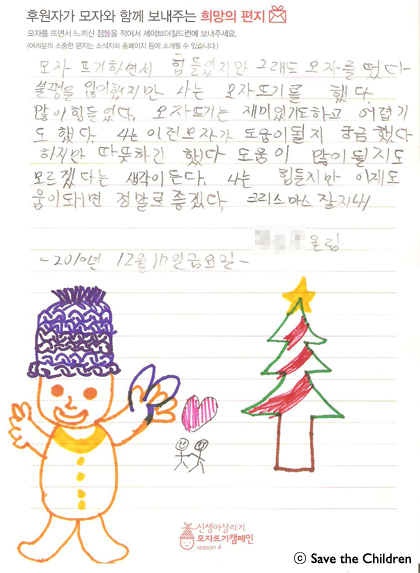 후원자가 모자와 함께 보내주는 희망의 편지
모자를 뜨면서 느끼신 점들을 적어서 세이브더칠드런에 보내주세요.
(여러분의 소중한 편지는 소식지와 홈페이지 등에 소개될 수 있습니다.)
모자 포기하면서 힘들었지만 그래도 모자를 떴다
불평을 많이했지만 나는 모자뜨기를 했다.
많이힘들었다. 모자뜨기는 재미있기도하고 어렵기
도 했다. 나는 이런모자가 도움이될지 궁금했다
하지만 따뜻하긴 했다 도움이 많이될지도
모르겠다는 생각이든다. 나는 힘들지만 이게도
움이되면 정말로좋겠다. 크리스마스 잘지내
올림
-2010년 12월 17일금요일-
신생아살리기
모자뜨기캠페인
season 4
© Save the Children